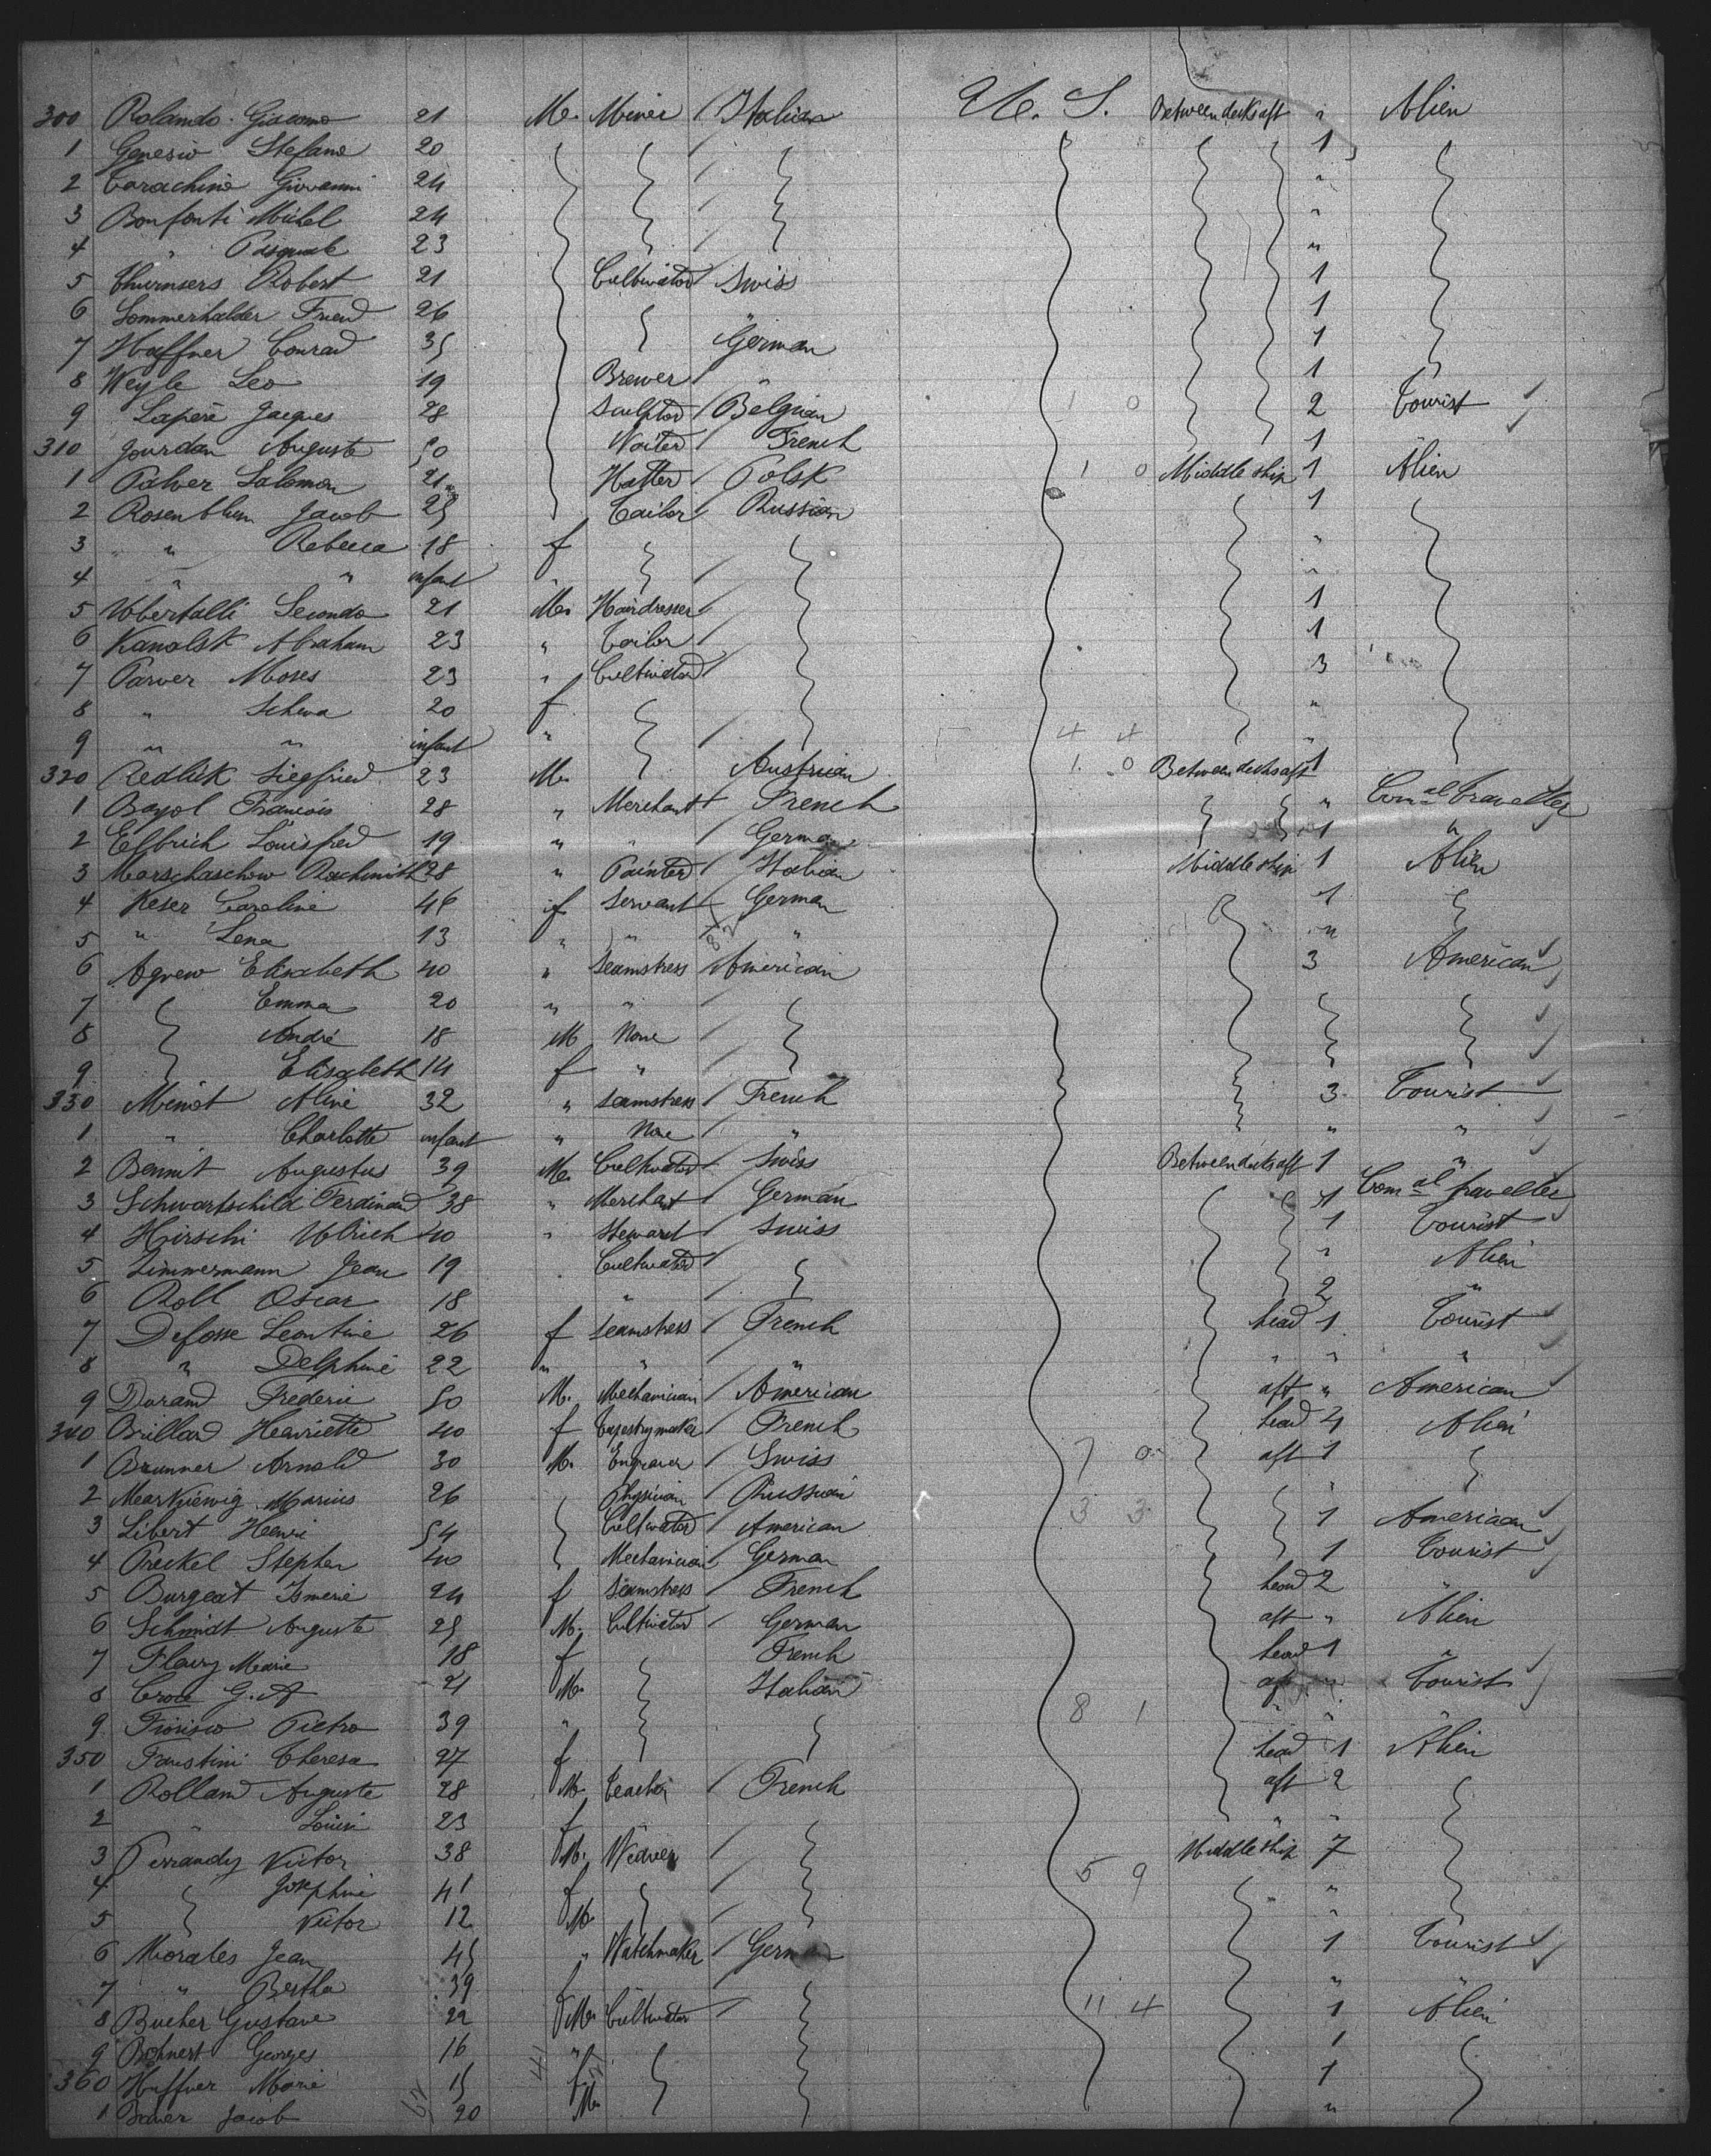 300 Rolando Giacomo 21 M. Miner / Italian U. S. Between decks aft " Alien
1 Genesio Stefano 20 1
2 Carachino Giovanni 24 / "
3 Bonfonti Michel 24 / "
4 " Pasquale 23 / "
5 Robert 21 Cultivator / Swiss 1
6 Sommerhalder 26 " 1
7 Haffner Conrad 35 German 1
8 Weyle Leo 19 Brewer " 1
9 Lapère Jacques 28 Sculptor / Belgian 1 0 2 Tourist
310 Jourdan Auguste 50 Waiter / French 1 "
1 Palver Salomon 21 Hatter / Polsk 1 0 Middle ship 1 Alien
2 Rosenblum Jacob 25 Tailor / Russian 1
3 " Rebecca 18 f / "
4 " " infant " / "
5 Secondo 21 M. Hairdresser / 1
6 Kanalsk Abraham 23 " Tailor / 1
7 Parver Moses 23 " Cultivator 3
8 " Schwa 20 f / "
9 " " infant " / 4 4 "
320 Redlick Siegfried 23 M. / Austrian 1 0 Between decks aft 1
1 Bayol François 28 " Merchant / French " Com al traveller
2 Elbrich Louis fred 19 " " German 1 "
3 Marschaschow 28 " Painter / Italian Middle ship 1 Alien
4 Keser Caroline 46 f Servant German 1
5 " Lena 13 " " " "
6 Agnew Elisabeth 40 " Seamstress / American 3 American
7 Emma 20 " " /
8 André 18 M None /
9 Elisabeth 14 f " /
330 Minot Aline 32 " Seamstress / French 3 Tourist
1 " Charlotte infant " None / " " "
2 Bennit Augustus 39 M. Cultivator Swiss Between decks aft 1 "
3 Schwartschild Ferdinand 38 " Merchant / German 1 Com al traveller
4 Hirschi Ulrich 40 " Steward / Swiss 1 Tourist
5 Zimmermann Jean 19 Cultivator / " Alien
6 Roll Oscar 18 " / 2 "
7 Defosse Leontine 26 f Seamstress / French head 1 Tourist
8 " Delphine 22 " " / " " " "
9 Durand Frederic 50 M. Mechanician / American aft " American
340 Brillard Henriette 40 f Tapestrymaker / French head 4 Alien
1 Brunner Arnold 30 M. Engraver / Swiss 7 0 aft 1
2 Marius 26 Physician / Russian "
3 Libert Henri 54 Cultivator / American 3 3 1 American
4 Preckel Stephen 40 Mechanician / German 1 Tourist
5 Burgeat Ismerie 24 f Seamstress / French head 2 "
6 Schmidt Auguste 25 M. Cultivator / German aft " Alien
7 Fleury Marie 18 f French head 1 "
8 Croce G. A 21 M. / Italian aft " Tourist
9 Pietro 39 " / 8 1 " " "
350 Faustini Theresa 27 f / head 1 Alien
1 Rolland Auguste 28 M. Teacher / French aft 2
2 " 23 f " "
3 Perrandy Victor 38 M. Weaver / Middle ship 7
4 Josephine 41 f / 5 9 "
5 Victor 12 M. / "
6 Morales Jean 45 " Watchmaker / German 1 Tourist
7 " Bertha 39 f / " "
8 Bucher Gustave 22 M. Cultivator / 11 4 1 Alien
9 Bohnert Georges 16 " 1
360 Haffner Marie 15 f 1
1 Jacob 20 M. "